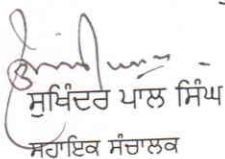 ਸੁਖਿੰਦਰ ਪਾਲ ਸਿੰਘ
ਸਹਾਇਕ ਸੰਚਾਲਕ